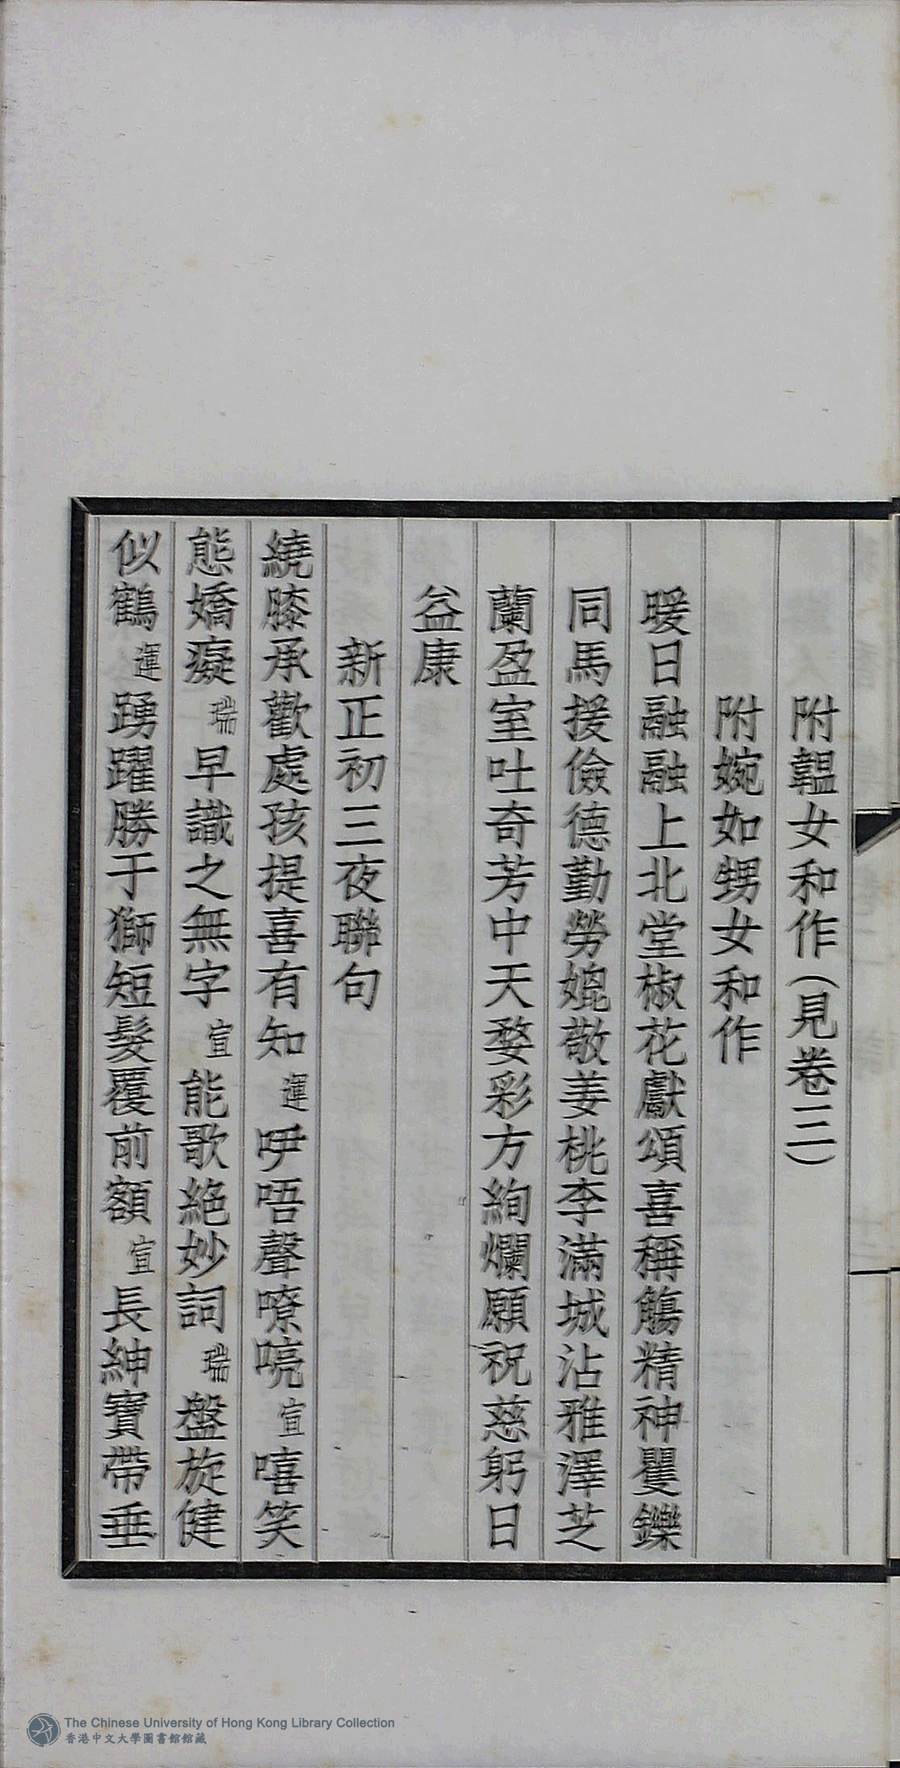 附韞女和作（見卷三）
附婉如甥女和作
暖日融融上北堂椒花獻頌喜稱觴精神矍鑠
同馬援儉德勤勞媲敬姜桃李滿城沾雅澤芝
蘭盈室吐奇芳中天婺彩方絢爛願祝慈躬日
益康
新正初三夜聯句
繞膝承歡處孩提喜有知運咿唔聲嘹喨宣嘻笑
態嬌癡瑞早識之無字宣能歌絕妙詞瑞盤旋健
似鶴運踴躍勝于獅短髮覆前額宣長紳寶帶垂
The Chinese University of Hong Kong Library Collection
香港中文大學圖書館館藏